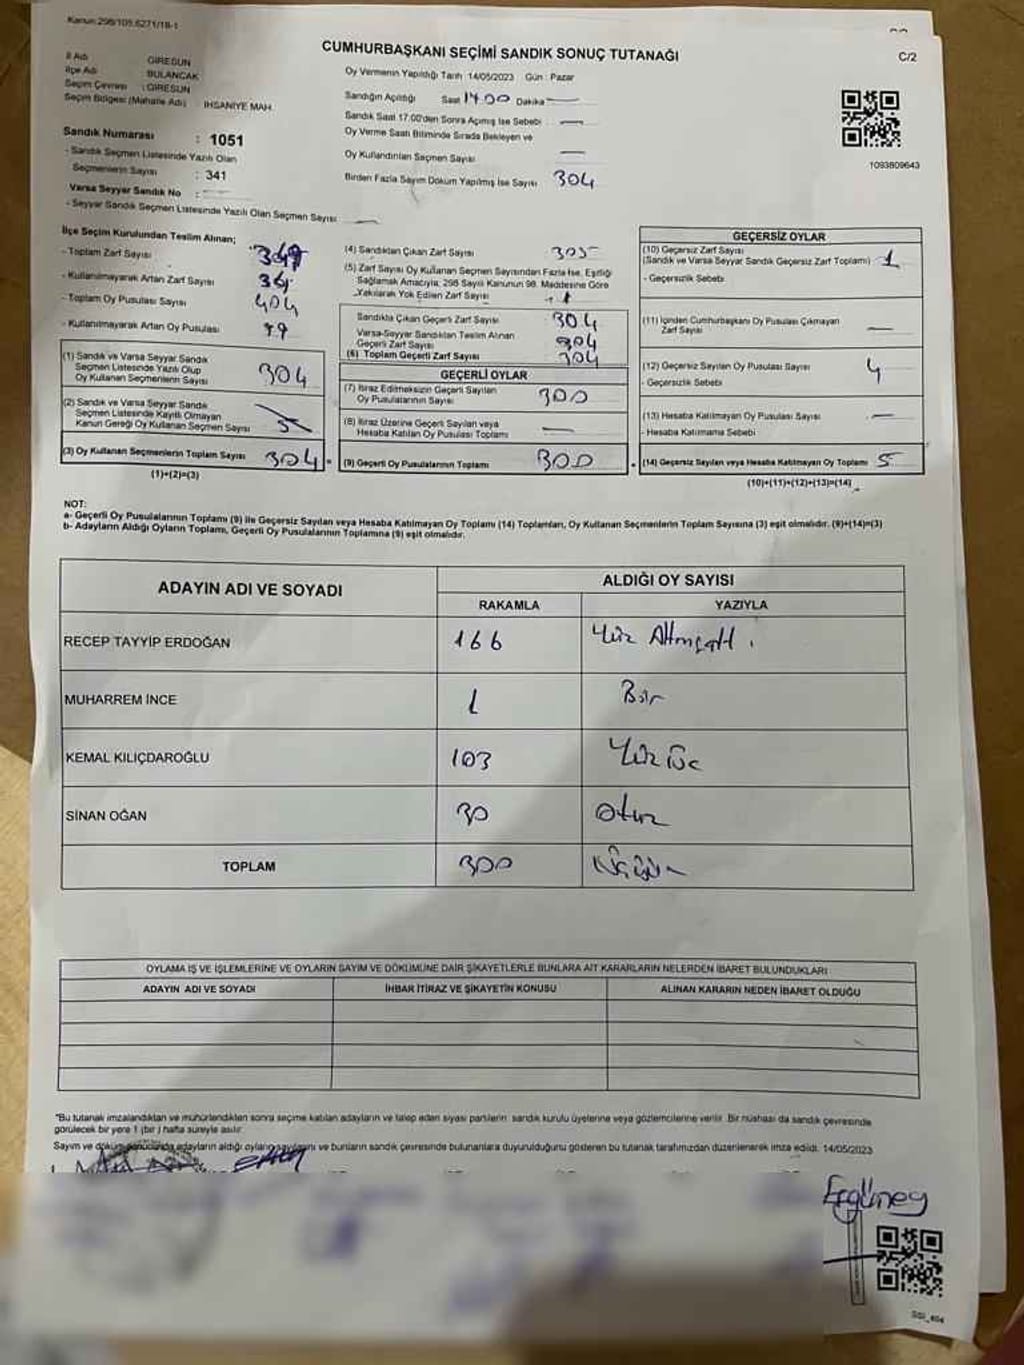 Kanun:298/105,6271/18-1
CUMHURBAŞKANI SEÇİMİ SANDIK SONUÇ TUTANAĞI
C/2
İl Adı : GİRESUN
İlçe Adı : BULANCAK
Seçim Çevresi : GİRESUN
Seçim Bölgesi (Mahalle Adı) : İHSANİYE MAH.
Sandık Numarası : 1051
- Sandık Seçmen Listesinde Yazılı Olan
Seçmenlerin Sayısı : 341
Varsa Seyyar Sandık No :
- Seyyar Sandık Seçmen Listesinde Yazılı Olan Seçmen Sayısı
Oy Vermenin Yapıldığı Tarih 14/05/2023 Gün : Pazar
Sandığın Açıldığı Saat 17.00 Dakika
Sandık Saat 17.00'den Sonra Açılmış İse Sebebi
Oy Verme Saati Bitiminde Sırada Bekleyen ve
Oy Kullandırılan Seçmen Sayısı
Birden Fazla Sayım Döküm Yapılmış İse Sayısı 304
1093809643
İlçe Seçim Kurulundan Teslim Alınan;
- Toplam Zarf Sayısı
- Kullanılmayarak Artan Zarf Sayısı
- Toplam Oy Pusulası Sayısı 404
- Kullanılmayarak Artan Oy Pusulası 99
(1) Sandık ve Varsa Seyyar Sandık
Seçmen Listesinde Yazılı Olup
Oy Kullanan Seçmenlerin Sayısı 304
(2) Sandık ve Varsa Seyyar Sandık
Seçmen Listesinde Kayıtlı Olmayan
Kanun Gereği Oy Kullanan Seçmen Sayısı
(3) Oy Kullanan Seçmenlerin Toplam Sayısı 304
(1)+(2)=(3)
(4) Sandıktan Çıkan Zarf Sayısı 305
(5) Zarf Sayısı Oy Kullanan Seçmen Sayısından Fazla İse, Eşitliği
Sağlamak Amacıyla, 298 Sayılı Kanunun 98. Maddesine Göre
Yakılarak Yok Edilen Zarf Sayısı 1
Sandıkta Çıkan Geçerli Zarf Sayısı 304
Varsa-Seyyar Sandıktan Teslim Alınan
Geçerli Zarf Sayısı 304
(6) Toplam Geçerli Zarf Sayısı 304
GEÇERLİ OYLAR
(7) İtiraz Edilmeksizin Geçerli Sayılan
Oy Pusulalarının Sayısı 300
(8) İtiraz Üzerine Geçerli Sayılan veya
Hesaba Katılan Oy Pusulası Toplamı
(9) Geçerli Oy Pusulalarının Toplamı 300
GEÇERSİZ OYLAR
(10) Geçersiz Zarf Sayısı
(Sandık ve Varsa Seyyar Sandık Geçersiz Zarf Toplamı) 1
- Geçersizlik Sebebi
(11) İçinden Cumhurbaşkanı Oy Pusulası Çıkmayan
Zarf Sayısı
(12) Geçersiz Sayılan Oy Pusulası Sayısı 4
- Geçersizlik Sebebi
(13) Hesaba Katılmayan Oy Pusulası Sayısı
- Hesaba Katılmama Sebebi
(14) Geçersiz Sayılan veya Hesaba Katılmayan Oy Toplamı 5
(10)+(11)+(12)+(13)=(14)
NOT:
a- Geçerli Oy Pusulalarının Toplamı (9) ile Geçersiz Sayılan veya Hesaba Katılmayan Oy Toplamı (14) Toplamları, Oy Kullanan Seçmenlerin Toplam Sayısına (3) eşit olmalıdır. (9)+(14)=(3)
b- Adayların Aldığı Oyların Toplamı, Geçerli Oy Pusulalarının Toplamına (9) eşit olmalıdır.
ADAYIN ADI VE SOYADI
ALDIĞI OY SAYISI
RAKAMLA YAZIYLA
RECEP TAYYİP ERDOĞAN 166 Yüz Altmışaltı
MUHARREM İNCE 1 Bir
KEMAL KILIÇDAROĞLU 103 Yüz üç
SİNAN OĞAN 30 Otuz
TOPLAM 300 Üçyüz
OYLAMA İŞ VE İŞLEMLERİNE VE OYLARIN SAYIM VE DÖKÜMÜNE DAİR ŞİKAYETLERLE BUNLARA AİT KARARLARIN NELERDEN İBARET BULUNDUKLARI
ADAYIN ADI VE SOYADI İHBAR İTİRAZ VE ŞİKAYETİN KONUSU ALINAN KARARIN NEDEN İBARET OLDUĞU
*Bu tutanak imzalandıktan ve mühürlendikten sonra seçime katılan adayların ve talep eden siyasi partilerin sandık kurulu üyelerine veya gözlemcilerine verilir. Bir nüshası da sandık çevresinde
görülecek bir yere 1 (bir) hafta süreyle asılır.
Sayım ve dökümü sonucunda adayların aldığı oyların sayısını ve bunların sandık çevresinde bulunanlara duyurulduğunu gösteren bu tutanak tarafımızdan düzenlenerek imza edildi. 14/05/2023
Ergüney